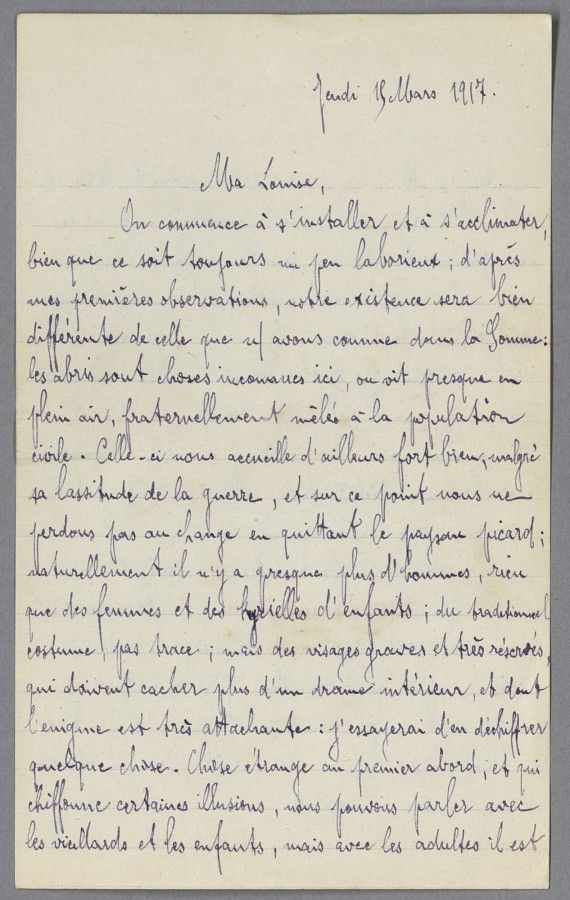 Jeudi 15 Mars 1917.
Ma Louise,
On commence à s'installer et à s'acclimater,
bien que ce soit toujours un peu laborieux ; d'après
mes premières observations, notre existence sera bien
différente de celle que n/ avons connue dans la Somme :
les abris sont choses inconnues ici, on vit presque en
plein air, fraternellement mêlés à la population
civile. Celle-ci nous accueille d'ailleurs fort bien, malgré
sa lassitude de la guerre, et sur ce point nous ne
perdons pas au change en quittant le paysan picard ;
naturellement il n'y a presque plus d'hommes, rien
que des femmes et des kyrielles d'enfants ; du traditionnel
costume, pas trace ; mais des visages graves et très réservés,
qui doivent cacher plus d'un drame intérieur, et dont
l'enigme est très attachante : j'essayerai d'en déchiffrer
quelque chose. Chose étrange au premier abord, et qui
chiffonne certaines illusions, nous pouvons parler avec
les vieillards et les enfants, mais avec les adultes il est